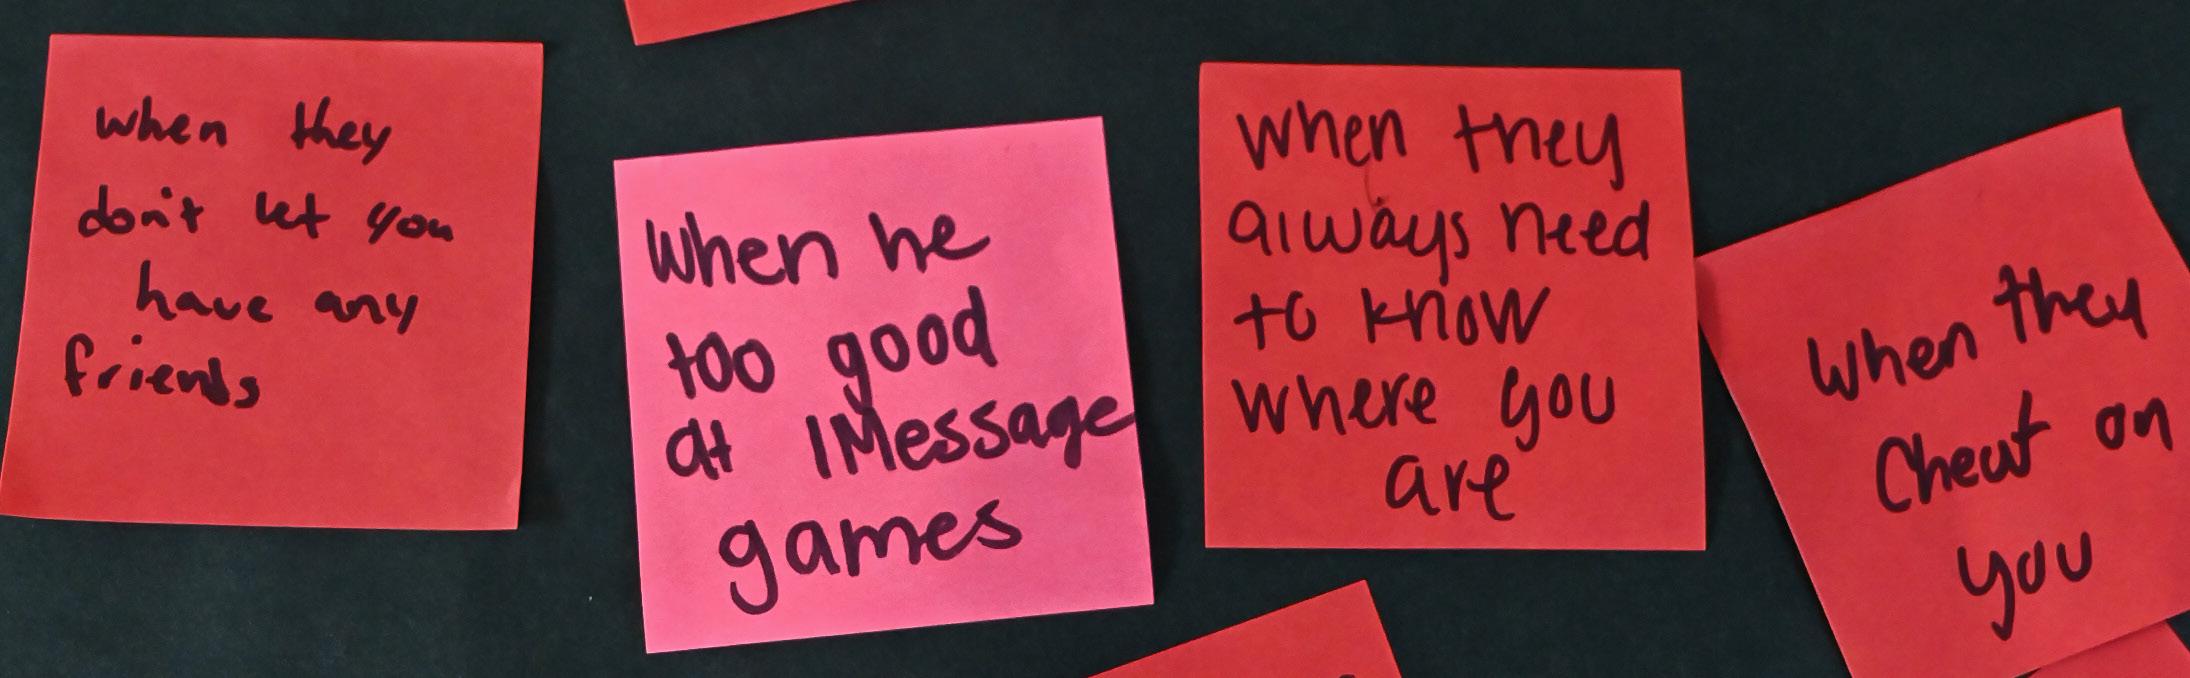 when they
don't let you
have any
friends
When he
too good
at IMessage
games
When they
always need
to know
where you
are
When they
Cheat on
you